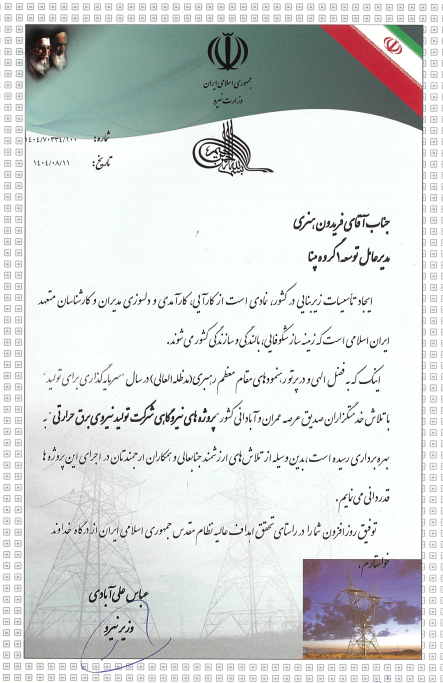 جمهوری اسلامی ایران
وزارت نیرو
شماره: ۱۴۰۴/۷۰۳۳۴/۱۰۰
تاریخ: ۱۴۰۴/۰۸/۱۱
بسم الله الرحمن الرحیم
جناب آقای فریدون هنری
مدیرعامل توسعه ۱ گروه مپنا
ایجاد تأسیسات زیربنایی در کشور، نمادی است از کارآیی، کارآمدی و دلسوزی مدیران و کارشناسان متعهد
ایران اسلامی است که زمینه ساز شکوفایی، بالندگی و سازندگی کشور می شوند.
اینک که به فضل الهی و در پرتو رهنمودهای مقام معظم رهبری (مدظله العالی) در سال "سرمایه گذاری برای تولید"
با تلاش خدمتگزاران صدیق عرصه عمران و آبادانی کشور "پروژه های نیروگاهی شرکت تولید نیروی برق حرارتی" به
بهره برداری رسیده است، بدین وسیله از تلاش های ارزشمند جنابعالی و همکاران ارجمندتان در اجرای این پروژه ها
قدردانی می نمایم.
توفیق روزافزون شما را در راستای تحقق اهداف عالیه نظام مقدس جمهوری اسلامی ایران از درگاه خداوند
خواستارم.
عباس علی آبادی
وزیر نیرو